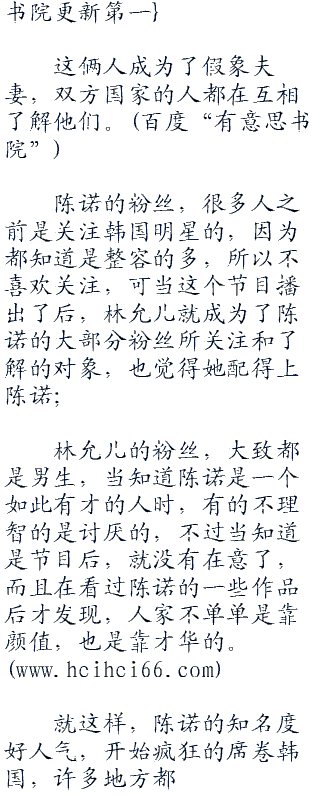 书院更新第一}
这俩人成为了假象夫
妻，双方国家的人都在互相
了解他们。(百度“有意思书
院”)
陈诺的粉丝，很多人之
前是关注韩国明星的，因为
都知道是整容的多，所以不
喜欢关注，可当这个节目播
出了后，林允儿就成为了陈
诺的大部分粉丝所关注和了
解的对象，也觉得她配得上
陈诺;
林允儿的粉丝，大致都
是男生，当知道陈诺是一个
如此有才的人时，有的不理
智的是讨厌的，不过当知道
是节目后，就没有在意了，
而且在看过陈诺的一些作品
后才发现，人家不单单是靠
颜值，也是靠才华的。
(www.hcihci66.com)
就这样，陈诺的知名度
好人气，开始疯狂的席卷韩
国，许多地方都